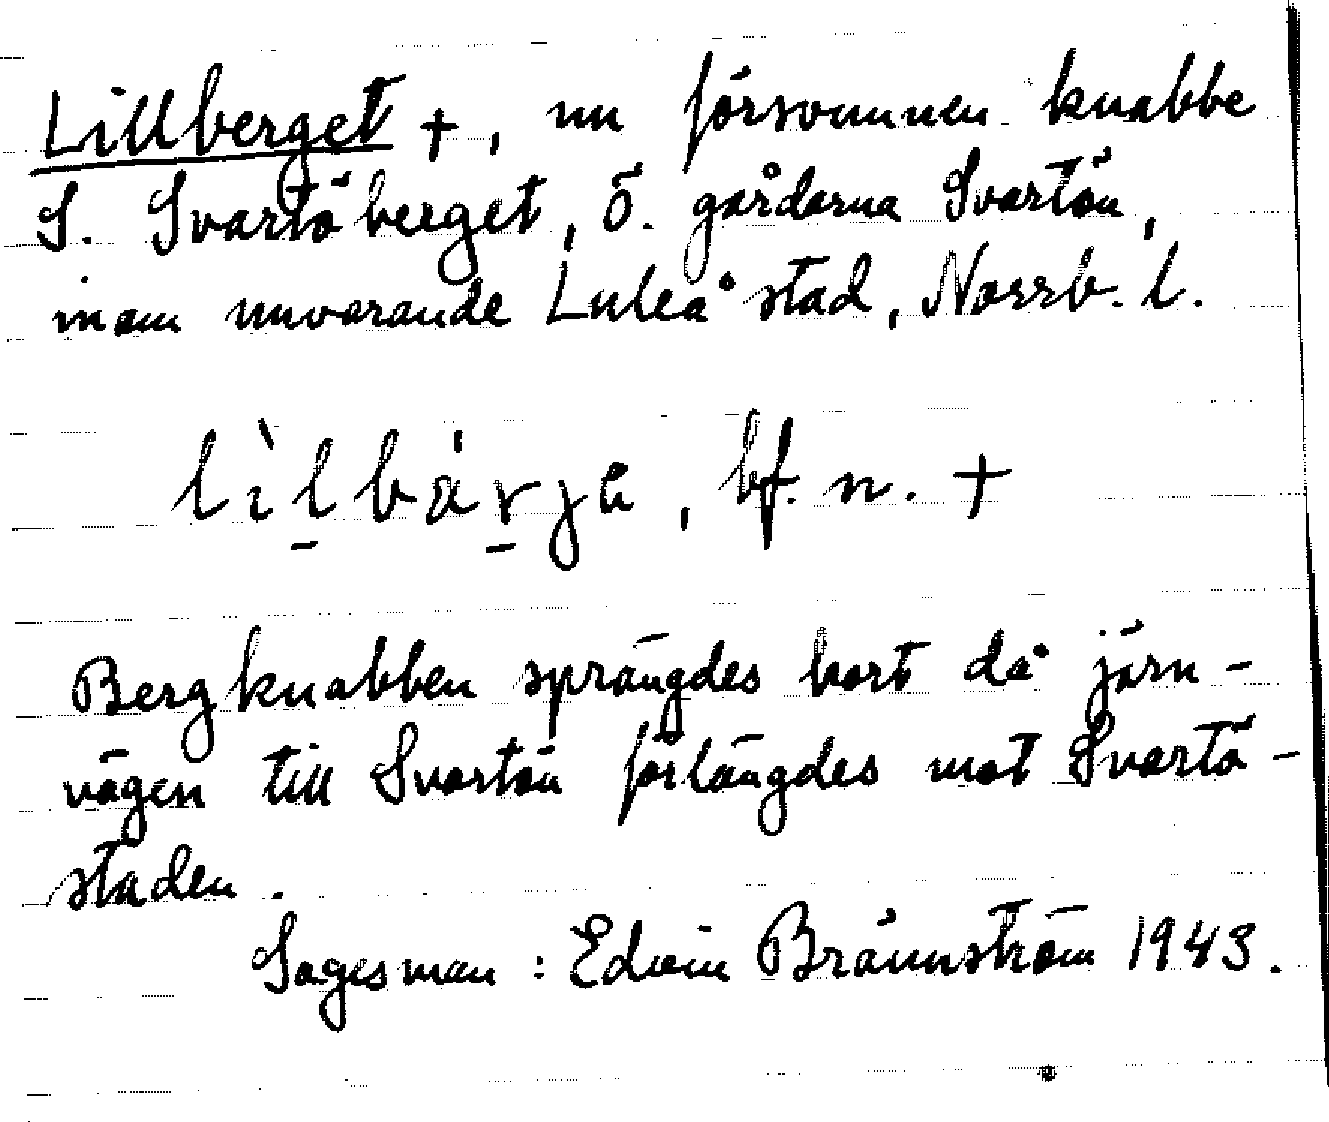 Lillberget +, nu försvunnen knabbe
S. Svartöberget, ö. gårdarna Svartön,
inom nuvarande Luleå stad, Norrb. l.
lìlbá̈rja, bf. n. +
Bergknabben sprängdes bort då järn-
vägen till Svartön förlängdes mot Svartö-
staden.
Sagesman: Edvin Brännström 1943.